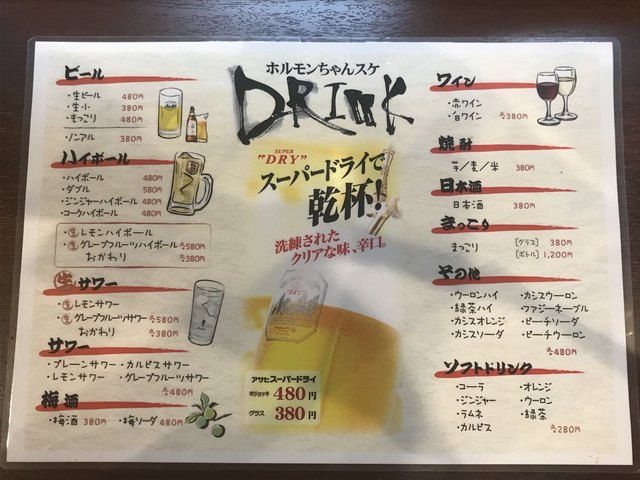 ビール
・生ビール 480円
・生小 380円
・もっこり 480円
・ノンアル 380円
ハイボール
・ハイボール 480円
・ダブル 580円
・ジンジャーハイボール 480円
・コークハイボール 480円
・生レモンハイボール
・生グレープフルーツハイボール 各580円
おかわり 各380円
生サワー
・生レモンサワー
・生グレープフルーツサワー 各580円
おかわり 各380円
サワー
・プレーンサワー ・カルピスサワー
・レモンサワー ・グレープフルーツサワー
梅酒
・梅酒 380円 ・梅ソーダ 480円
ホルモンちゃんスケ
DRINK
SUPER
"DRY"
スーパードライで
乾杯!
洗練された
クリアな味、辛口。
アサヒスーパードライ
中ジョッキ 480円
グラス 380円
ワイン
・赤ワイン
・白ワイン 各380円
焼酎
芋/麦/米 380円
日本酒
日本酒 380円
まっこり
まっこり [グラス] 380円
[ボトル] 1,200円
その他
・ウーロンハイ ・カシスウーロン
・緑茶ハイ ・ファジーネーブル
・カシスオレンジ ・ピーチソーダ
・カシスソーダ ・ピーチウーロン
各480円
ソフトドリンク
・コーラ ・オレンジ
・ジンジャー ・ウーロン
・ラムネ ・緑茶
・カルピス 各280円